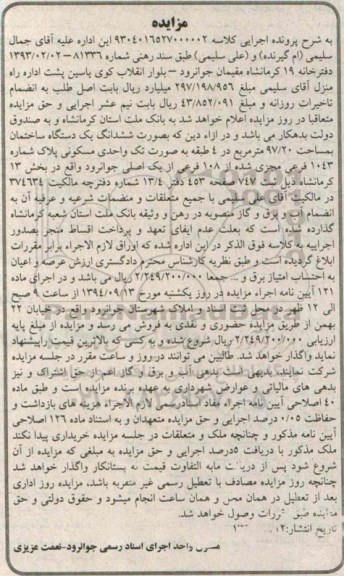 مزایده
به شرح پرونده اجرایی کلاسه ۹۳۰۴۰۱۶۵۲۷۰۰۰۰۰۲ این اداره علیه آقای جمال
سلیمی (ام گیرنده) و (علی سلیمی) طبق سند رهنی شماره ۸۱۳۳۶ – ۱۳۹۳/۰۲/۰۲
دفترخانه ۱۹ کرمانشاه مقیمان جوانرود – بلوار انقلاب کوی یاسین پشت اداره راه
منزل آقای سلیمی مبلغ ۲۹۷/۱۹۸/۹۵۶ میلیارد ریال بابت اصل طلب به انضمام
تاخیرات روزانه و مبلغ ۴۳/۸۵۲/۰۹۱ ریال بابت نیم عشر اجرایی و حق مزایده
متعاقبا در روز مزایده اعلام خواهد شد به بانک ملت استان کرمانشاه و به صندوق
دولت بدهکار می باشد و در ازاء دین که بصورت ششدانگ یک دستگاه ساختمان
بمساحت ۹۷/۲۰ مترمربع در ۴ طبقه به صورت تک واحدی مسکونی پلاک شماره
۱۰۴۳ فرعی مجزی شده از ۱۰۸ فرعی از یک اصلی جوانرود واقع در بخش ۱۳
کرمانشاه ذیل ثبت ۷۴۷ صفحه ۴۵۳ دفتر ۱۳/۴ شماره دفترچه مالکیت ۳۷۴۶۳۴
در مالکیت آقای علی سلیمی با جمیع متعلقات و منضمات شرعیه و عرفیه آن به
انضمام آب و برق و گاز منصوبه در رهن و وثیقه بانک ملت استان شعبه کرمانشاه
گذارده شده است که بعلت عدم ایفای تعهد و پرداخت اقساط منجر بصدور
اجراییه به کلاسه فوق الذکر در این اداره شده که اوراق لازم الاجراء برابر مقررات
ابلاغ گردیده است و طبق نظریه کارشناس محترم دادگستری ارزش عرصه و اعیان
به احتساب امتیاز برق و ... جمعا ۲/۲۴۹/۲۰۰/۰۰۰ ریال می باشد و در اجرای ماده
۱۲۱ آیین نامه اجراء مزایده در روز یکشنبه مورخ ۱۳۹۴/۰۹/۱۳ از ساعت ۹ صبح
الی ۱۲ ظهر در محل اداره اسناد و املاک شهرستان جوانرود واقع در خیابان ۲۲
بهمن از طریق مزایده حضوری و نقدی به فروش می رسد و مزایده از مبلغ پایه
ارزیابی ۲/۲۴۹/۲۰۰/۰۰۰ ریال شروع شده و به کسی که بالاترین قیمت را پیشنهاد
نماید واگذار خواهد شد. طالبین می توانند در روز و ساعت مقرر در جلسه مزایده
شرکت نمایند. بدیهی است بدهی آب و برق و گاز اعم از حق اشتراک و نیز
بدهی های مالیاتی و عوارض شهرداری به عهده برنده مزایده است و طبق ماده
۴۰ اصلاحی آیین نامه اجراء مفاد اسنادرسمی لازم الاجراء هزینه های بازداشت و
حفاظت ۰/۰۵ درصد اجرایی و حق مزایده متعهدان و به استناد ماده ۱۲۶ اصلاحی
آیین نامه مذکور و چنانچه ملک و متعلقات در جلسه مزایده خریداری پیدا نکند
ملک مذکور با دریافت ۵درصد اجرایی و حق مزایده به مبلغی که مزایده از آن
شروع شود پس از دریافت مابه التفاوت قیمت به بستانکار واگذار خواهد شد
چنانچه روز مزایده مصادف با تعطیل رسمی غیر مترقبه باشد، مزایده روز اداری
بعد از تعطیل در همان محل و همان ساعت انجام میشود و حقوق دولتی و حق
مزایده طبق مقررات وصول خواهد شد.
تاریخ انتشار:
مسئول واحد اجرای اسناد رسمی جوانرود–نعمت عزیزی